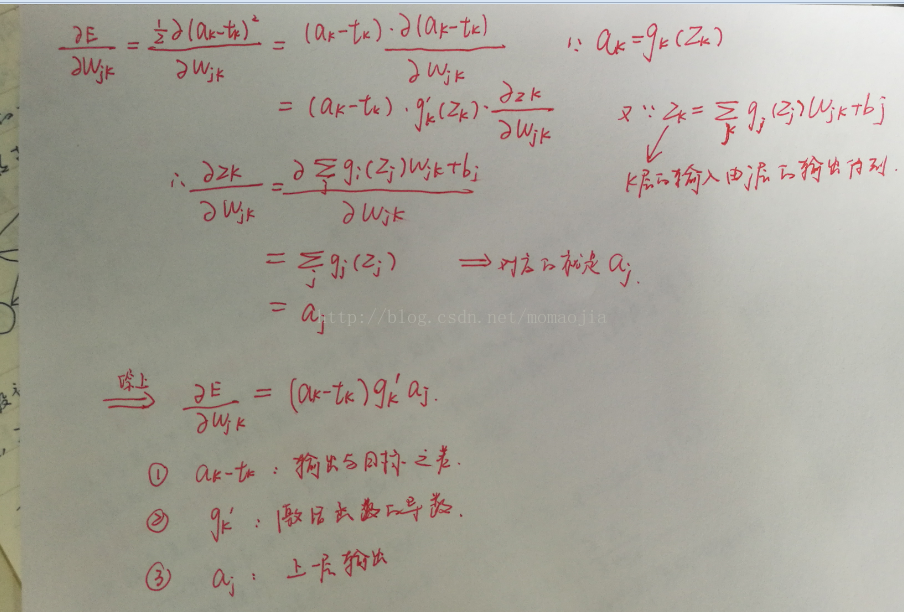 ∂E/∂W_jK = ½∂(a_K-t_K)²/∂W_jK = (a_K-t_K)·∂(a_K-t_K)/∂W_jK ∵ a_K=g_K(Z_K)
= (a_K-t_K)·g'_K(Z_K)·∂z_K/∂W_jK 又∵ Z_K=∑_j g_j(Z_j)W_jK+b_j
K层的输入由j层的输出得到.
∴ ∂z_K/∂W_jK = ∂∑_j g_j(Z_j)W_jK+b_j/∂W_jK
= ∑_j g_j(Z_j) ⇒ 对应的就是 a_j.
= a_j
http://blog.csdn.net/momaojia
综上 ⇒ ∂E/∂W_jK = (a_K-t_K)g'_K a_j.
① a_K-t_K: 输出与目标之差.
② g_K': 激活函数的导数.
③ a_j: 上一层输出